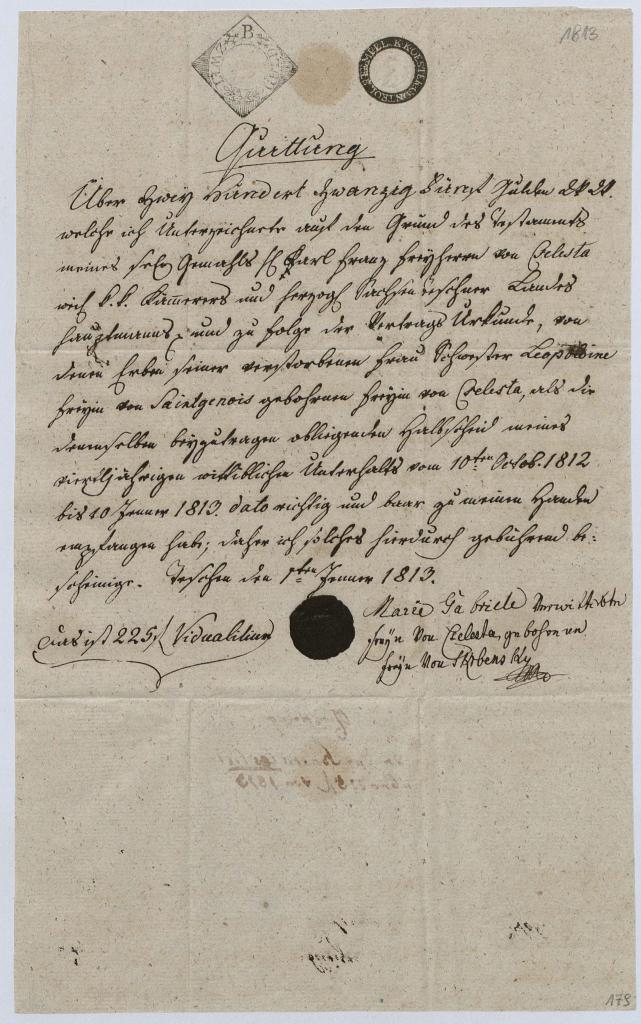 1813
B
STEMPEL K. K. OESTER. CONTROL
Quittung
Über Zwey Hundert Zwanzig Fünf Gulden
welche ich Unterzeichnete auf den Grund des Testaments
meines seel. Gemahls Karl Franz Freyherrn von Celesta
k. k. Kämmerers und herzogl. Sachsen Teschner Landes
hauptmanns, und zu Folge der Vertrags Urkunde, von
denen Erben seiner verstorbenen Frau Schwester Leopoldine
Freyin von Saintgenois gebohrnen Freyin von Celesta, als die
demselben beyzutragen obliegenden Halbscheid meines
vierteljährigen wittiblichen Unterhalts vom 10ten Octob. 1812
bis 10 Jenner 1813. dato richtig und baar zu meinen Handen
empfangen habe; daher ich solches hierdurch gebührend be:
scheinige. Teschen den Jenner 1813.
Das ist 225 f Vidualitium
Marie Gabriele Verwittibte
Freyn Von Celesta, gebohrne
Freyn Von Skrbensky
179